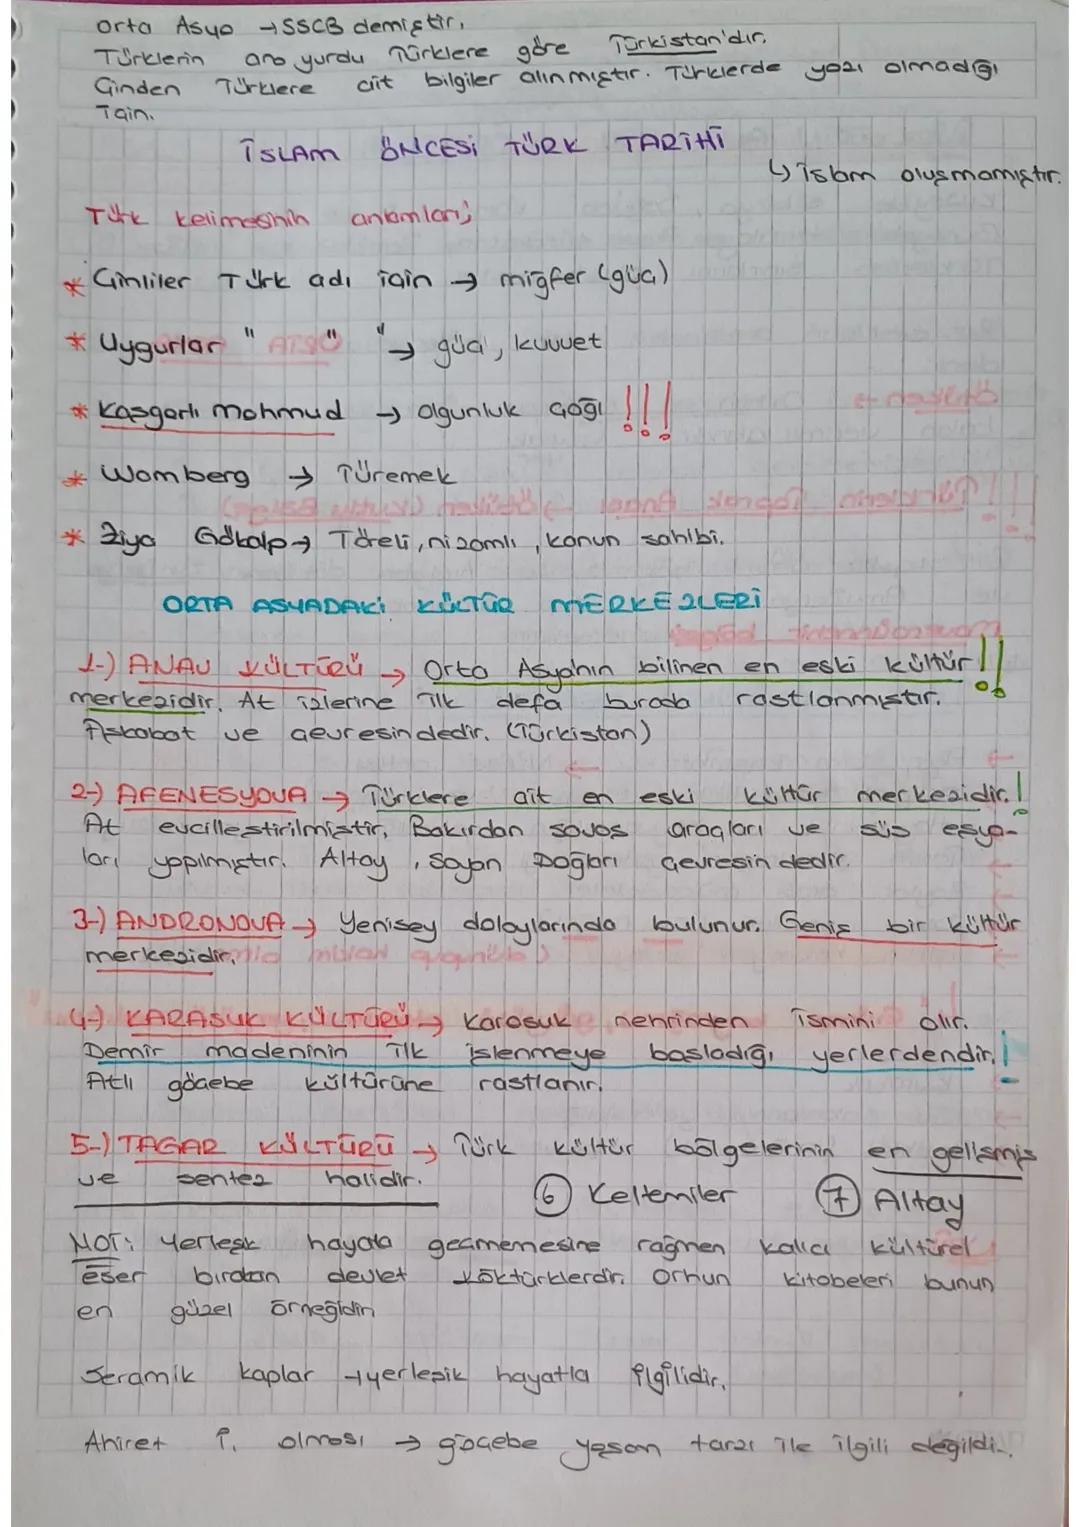 Orta Asya → SSCB demiştir.
Türklerin ana yurdu Türklere göre Türkistan'dır.
Çinden Türklere ait bilgiler alınmıştır. Türklerde yazı olmadığı
için.
İSLAM ÖNCESİ TÜRK TARİHİ
↳ İslam oluşmamıştır.
Türk kelimesinin anlamları;
* Çinliler Türk adı için → miğfer (güç)
* Uygurlar " " " → güç, kuvvet
* Kaşgarlı Mahmud → olgunluk çağı !!!
* Wamberg → Türemek
* Ziya Gökalp → Töreli, nizamlı, kanun sahibi.
ORTA ASYADAKİ KÜLTÜR MERKEZLERİ
1-) ANAV KÜLTÜRÜ → Orta Asyanın bilinen en eski kültür !!
merkezidir. At izlerine ilk defa burada rastlanmıştır.
Aşkabat ve çevresindedir. (Türkistan)
2-) AFENESYOVA → Türklere ait en eski kültür merkezidir. !
At evcilleştirilmiştir, Bakırdan savaş araçları ve süs eşya-
ları yapılmıştır. Altay, Sayan Dağları çevresindedir.
3-) ANDRONOVA → Yenisey dolaylarında bulunur. Geniş bir kültür
merkezidir.
4-) KARASUK KÜLTÜRÜ → Karasuk nehrinden ismini alır.
Demir madeninin ilk işlenmeye başladığı yerlerdendir. !
Atlı göçebe kültürüne rastlanır.
5-) TAGAR KÜLTÜRÜ → Türk kültür bölgelerinin en gelişmiş
ve sentez halidir.
6 Keltemiler 7 Altay
NOT: Yerleşk hayata geçmemesine rağmen kalıcı kültürel
eser bırakan devlet Köktürklerdir. Orhun kitabeleri bunun
en güzel örneğidin
Seramik kaplar → yerleşik hayatla ilgilidir.
Ahiret i. olması → göçebe yaşam tarzı ile ilgili değildi..